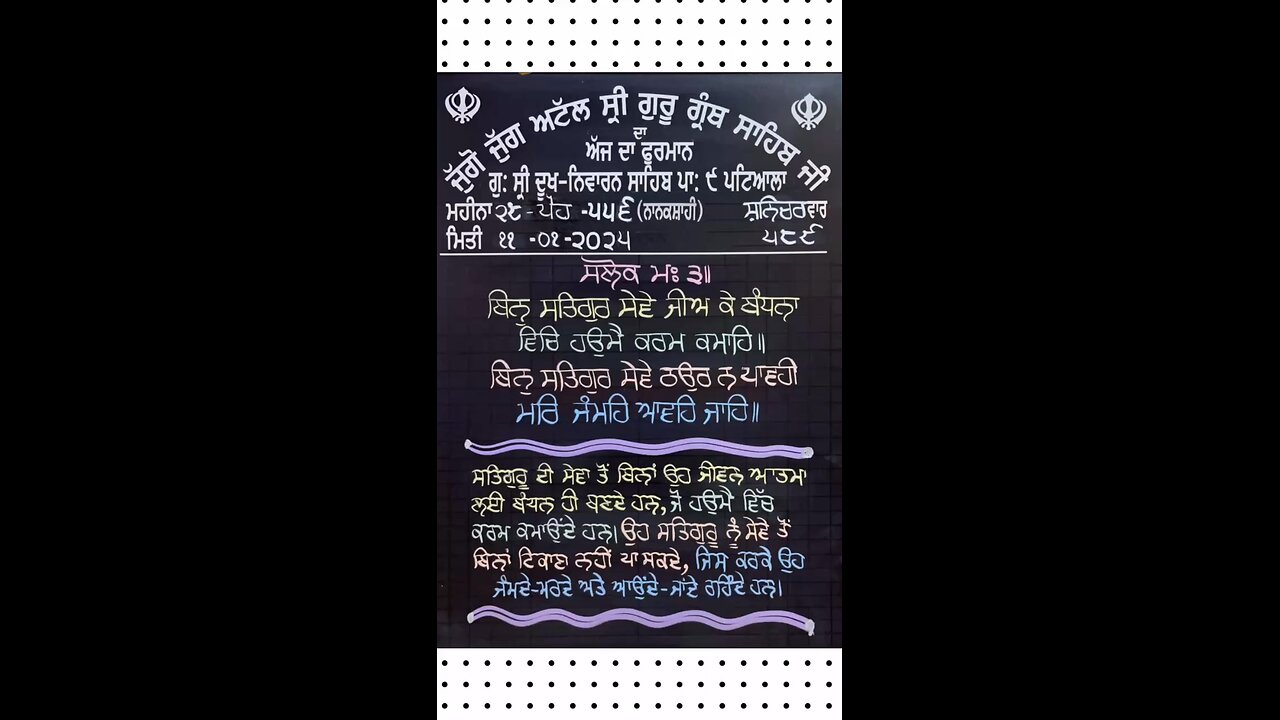 ਜੁੱਗੋ ਜੁੱਗ ਅਟੱਲ ਸ੍ਰੀ ਗੁਰੂ ਗ੍ਰੰਥ ਸਾਹਿਬ ਜੀ
ਦਾ
ਅੱਜ ਦਾ ਫੁਰਮਾਨ
ਗੁ: ਸ੍ਰੀ ਦੂਖ-ਨਿਵਾਰਨ ਸਾਹਿਬ ਪਾ: ੯ ਪਟਿਆਲਾ
ਮਹੀਨਾ ੨੮ - ਪੋਹ -੫੫੬ (ਨਾਨਕਸ਼ਾਹੀ) ਸ਼ਨਿਚਰਵਾਰ
ਮਿਤੀ ੧੧ -੦੧ -੨੦੨੫ ੫੮੯
ਸਲੋਕ ਮਃ ੩॥
ਬਿਨੁ ਸਤਿਗੁਰ ਸੇਵੇ ਜੀਅ ਕੇ ਬੰਧਨਾ
ਵਿਚਿ ਹਉਮੈ ਕਰਮ ਕਮਾਹਿ॥
ਬਿਨੁ ਸਤਿਗੁਰ ਸੇਵੇ ਠਉਰ ਨ ਪਾਵਹੀ
ਮਰਿ ਜੰਮਹਿ ਆਵਹਿ ਜਾਹਿ॥
ਸਤਿਗੁਰੂ ਦੀ ਸੇਵਾ ਤੋਂ ਬਿਨਾਂ ਉਹ ਜੀਵਨ ਆਤਮਾ
ਲਈ ਬੰਧਨ ਹੀ ਬਣਦੇ ਹਨ, ਜੋ ਹਉਮੈ ਵਿੱਚ
ਕਰਮ ਕਮਾਉਂਦੇ ਹਨ। ਉਹ ਸਤਿਗੁਰੂ ਨੂੰ ਸੇਵੇ ਤੋਂ
ਬਿਨਾਂ ਟਿਕਾਣਾ ਨਹੀਂ ਪਾ ਸਕਦੇ, ਜਿਸ ਕਰਕੇ ਉਹ
ਜੰਮਦੇ-ਮਰਦੇ ਅਤੇ ਆਉਂਦੇ-ਜਾਂਦੇ ਰਹਿੰਦੇ ਹਨ।